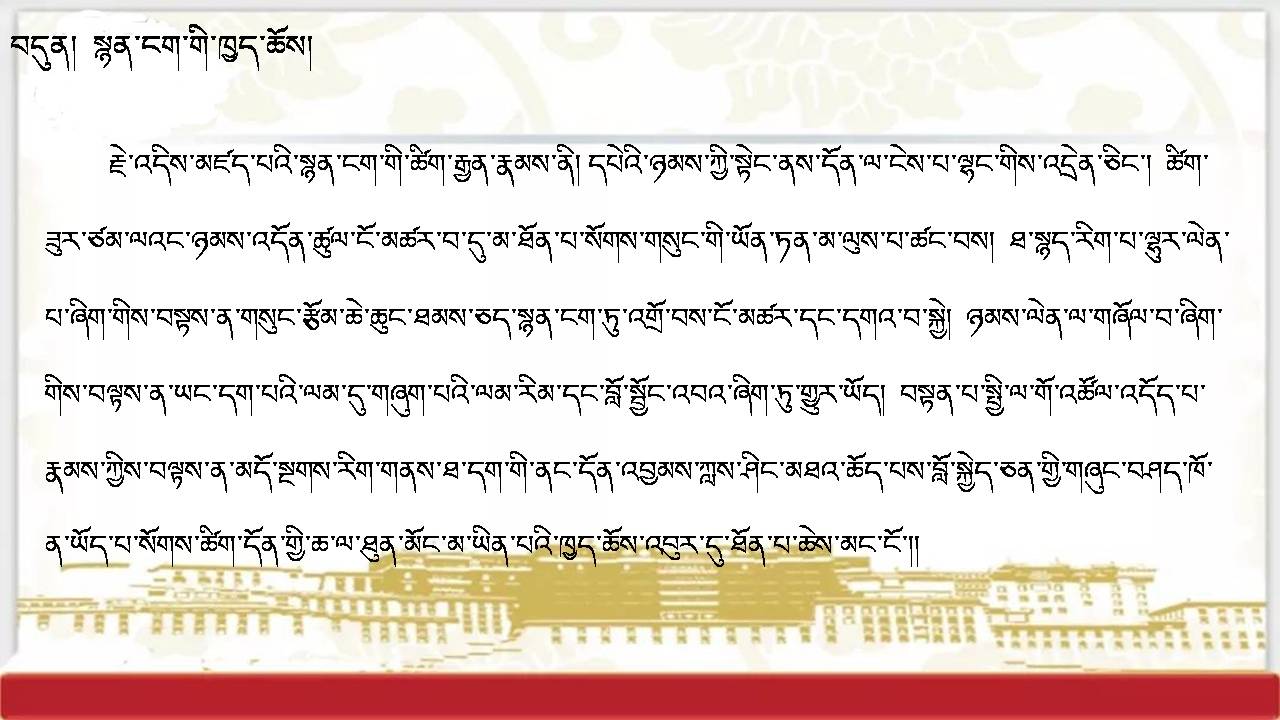 བདུན། སྙན་ངག་གི་ཁྱད་ཆོས།
རྗེ་འདིས་མཛད་པའི་སྙན་ངག་གི་ཚིག་རྒྱན་རྣམས་ནི། དཔེའི་ཉམས་ཀྱི་སྟེང་ནས་དོན་ལ་ངེས་པ་ལྷང་གིས་འདྲེན་ཅིང་། ཚིག་
ཟུར་ཙམ་ལའང་ཉམས་འདོན་ཚུལ་ངོ་མཚར་བ་དུ་མ་ཐོན་པ་སོགས་གསུང་གི་ཡོན་ཏན་མ་ལུས་པ་ཚང་བས། ཐ་སྙད་རིག་པ་ལྷུར་ལེན་
པ་ཞིག་གིས་བསྟས་ན་གསུང་རྩོམ་ཆེ་ཆུང་ཐམས་ཅད་སྙན་ངག་ཏུ་འགྲོ་བས་ངོ་མཚར་དང་དགའ་བ་སྐྱེ། ཉམས་ལེན་ལ་གཞོལ་བ་ཞིག་
གིས་བལྟས་ན་ཡང་དག་པའི་ལམ་དུ་གཞུག་པའི་ལམ་རིམ་དང་བློ་སྦྱོང་འབའ་ཞིག་ཏུ་གྱུར་ཡོད། བསྟན་པ་སྤྱི་ལ་གོ་འཚོལ་འདོད་པ་
རྣམས་ཀྱིས་བལྟས་ན་མདོ་སྔགས་རིག་གནས་ཐ་དག་གི་ནང་དོན་འབྱམས་ཀླས་ཤིང་མཐའ་ཆོད་པས་བློ་སྐྱེད་ཅན་གྱི་གཞུང་བཤད་ཁོ་
ན་ཡོད་པ་སོགས་ཚིག་དོན་གྱི་ཆ་ལ་ཐུན་མོང་མ་ཡིན་པའི་ཁྱད་ཆོས་འབུར་དུ་ཐོན་པ་ཆེས་མང་ངོ་།།